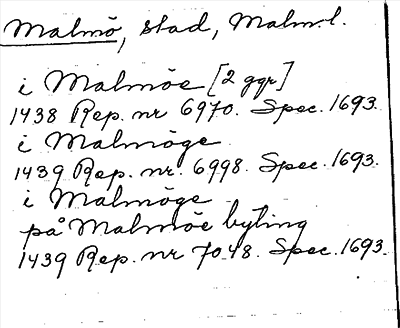 Malmö, stad, Malm. l.
i Malmöe [2 ggr]
1438 Rep. nr 6970. Spec. 1693.
i Malmöge
1439 Rep. nr. 6998. Spec. 1693.
i Malmöge
på Malmöe byting
1439 Rep. nr 7048. Spec. 1693.